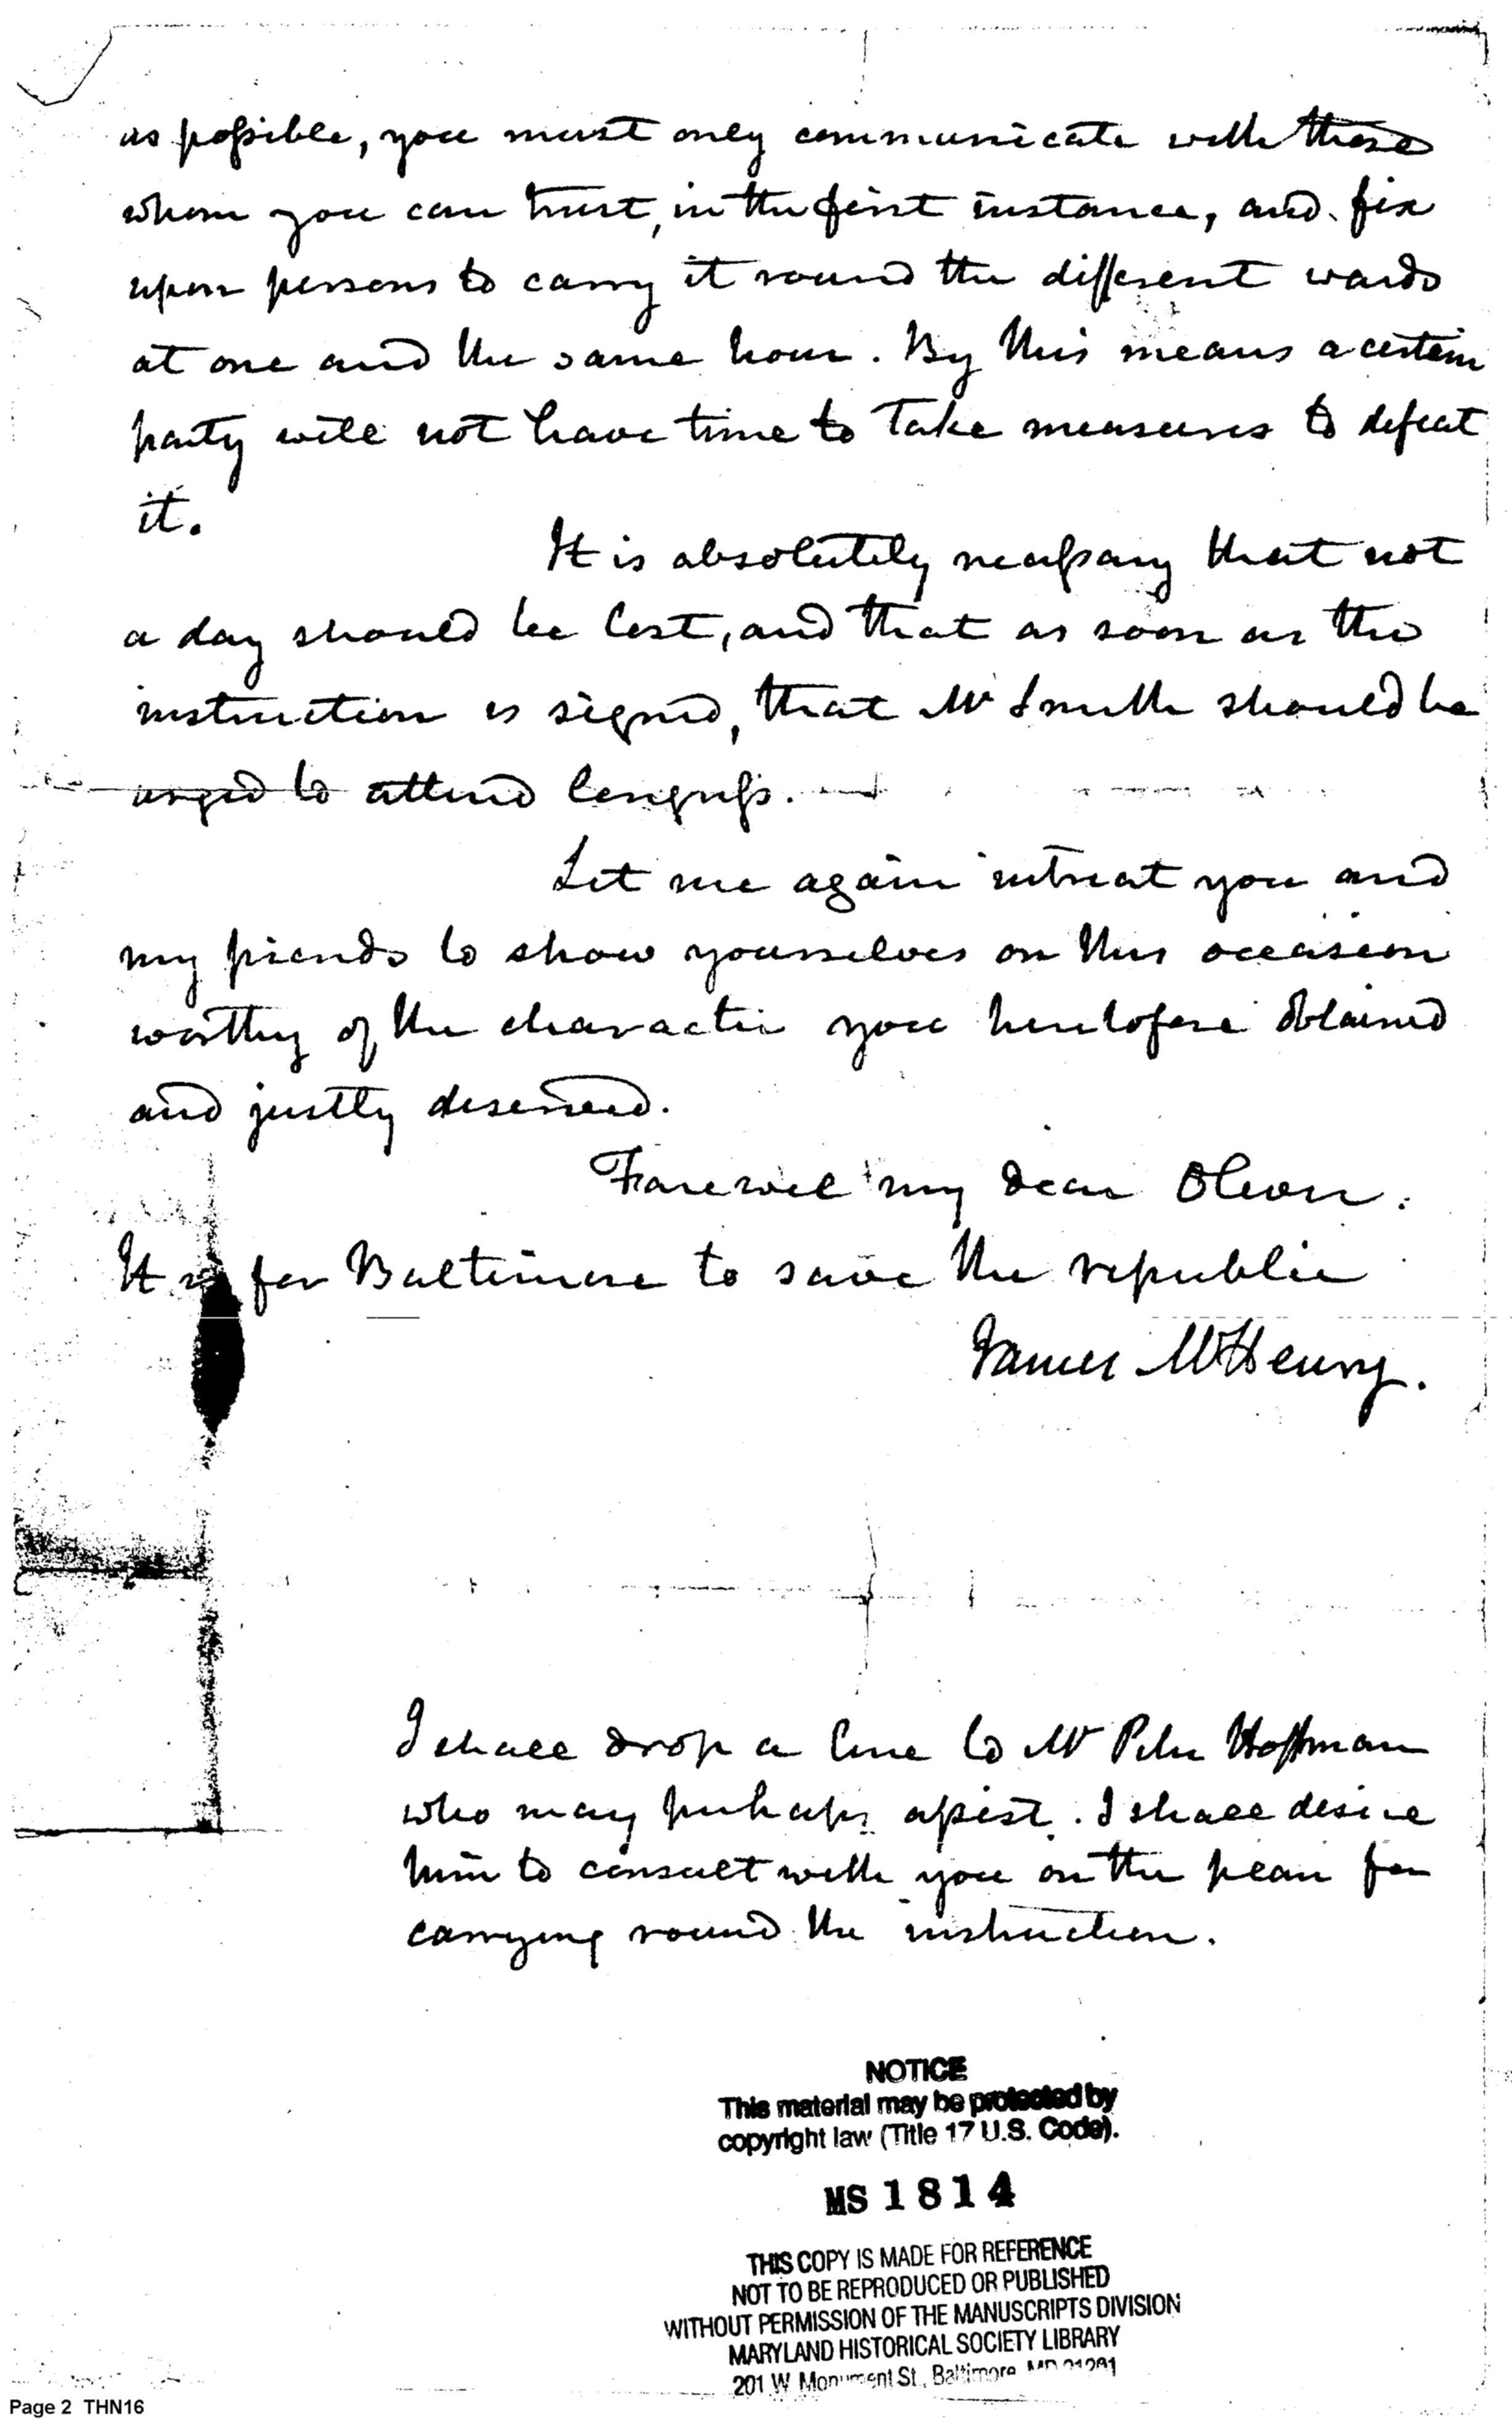 as possible, you must only communicate with those
whom you can trust, in the first instance, and fix
upon persons to carry it round the different wards
at one and the same hour. By this means a certain
party will not have time to take measures to defeat
it.
It is absolutely necessary that not
a day should be lost, and that as soon as the
instruction is signed, that Mr Smith should be
urged to attend Congress.
Let me again intreat you and
my friends to show yourselves on this occasion
worthy of the character you heretofore obtained
and justly deserved.
Farewel my dear Oliver.
It is for Baltimore to save the republic
James McHenry.
I shall drop a line to Mr Peter Hoffman
who may perhaps assist. I shall desire
him to consult with you on the plan for
carrying round the instruction.
NOTICE
This material may be protected by
copyright law (Title 17 U.S. Code).
MS 1814
THIS COPY IS MADE FOR REFERENCE
NOT TO BE REPRODUCED OR PUBLISHED
WITHOUT PERMISSION OF THE MANUSCRIPTS DIVISION
MARYLAND HISTORICAL SOCIETY LIBRARY
201 W. Monument St., Baltimore, MD 21201
Page 2 THN16